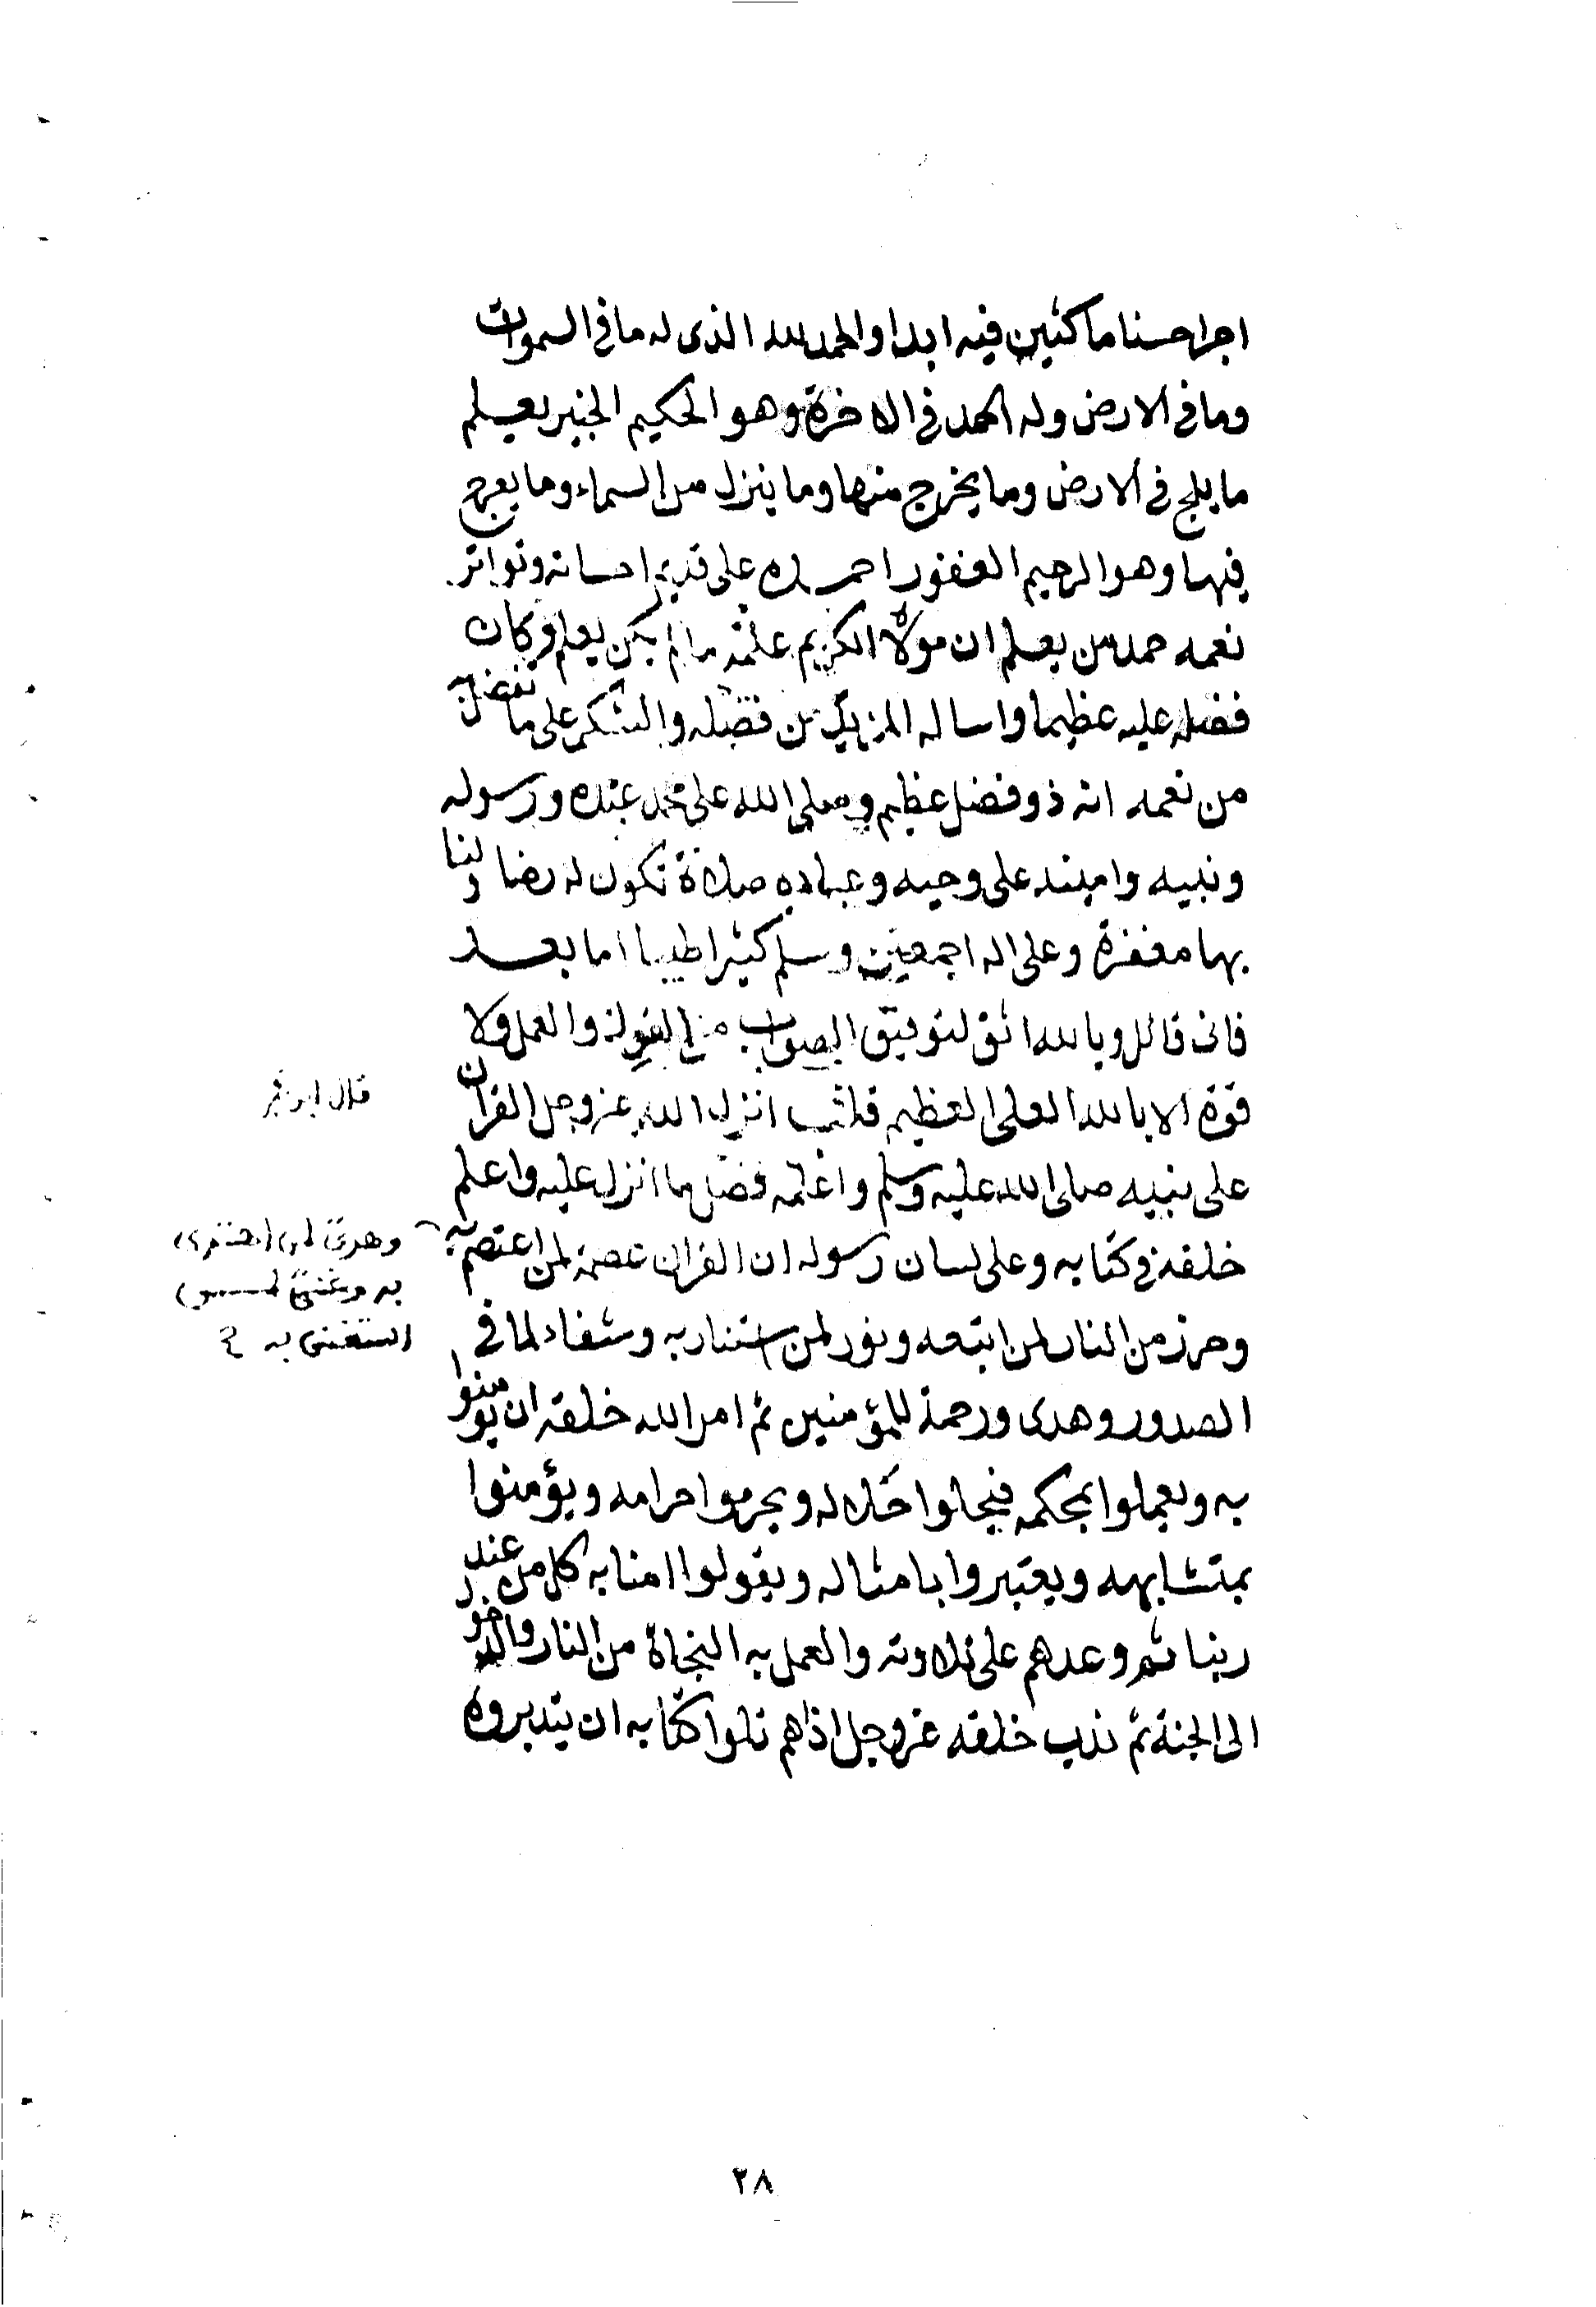 اجرا حسنا ماكثين فيه ابدا والحمد لله الذى له ما فى السموات
وما فى الارض وله الحمد فى الاخرة وهو الحكيم الخبير يعلم
ما يلج فى الارض وما يخرج منها وما ينزل من السماء وما يعرج
فيها وهو الرحيم الغفور احمده على قديم احسانه وتواتر
نعمه حمد من يعلم ان مولاه الكريم علمه ما لم يكن يعلم وكان
فضله عليه عظيما واساله المزيد من فضله والشكر على ما تفضل
من نعمه انه ذو فضل عظيم وصلى الله على محمد عبده ورسوله
ونبيه وامينه على وحيه وعباده صلاة تكون له رضا ولنا
بها مغفرة وعلى اله اجمعين وسلم كثيرا طيبا اما بعد
فانى قائل وبالله اثق لتوفيق الصواب من القول والعمل ولا
قوة الا بالله العلى العظيم قلت انزل الله عز وجل القران
على نبيه صلى الله عليه وسلم واعلمه فضل ما انزل عليه واعلم
خلقه فى كتابه وعلى لسان رسوله ان القران عصمة لمن اعتصم به
وحرز من النار لمن اتبعه ونور لمن استنار به وشفاء لما فى
الصدور وهدى ورحمة للمؤمنين ثم امر الله خلقه ان يومنوا
به ويعملوا بمحكمه فيحلوا حلاله ويحرموا حرامه ويؤمنوا
بمتشابهه ويعتبروا بامثاله ويقولوا امنا به كل من عند
ربنا ثم وعدهم على تلاوته والعمل به النجاة من النار والدخول
الى الجنة ثم ندب خلقه عز وجل اذا هم تلوا كتابه ان يتدبروه
قال ابو
وهدى لمن اهتدى
به وغنى لمن
استغنى به
٢٨